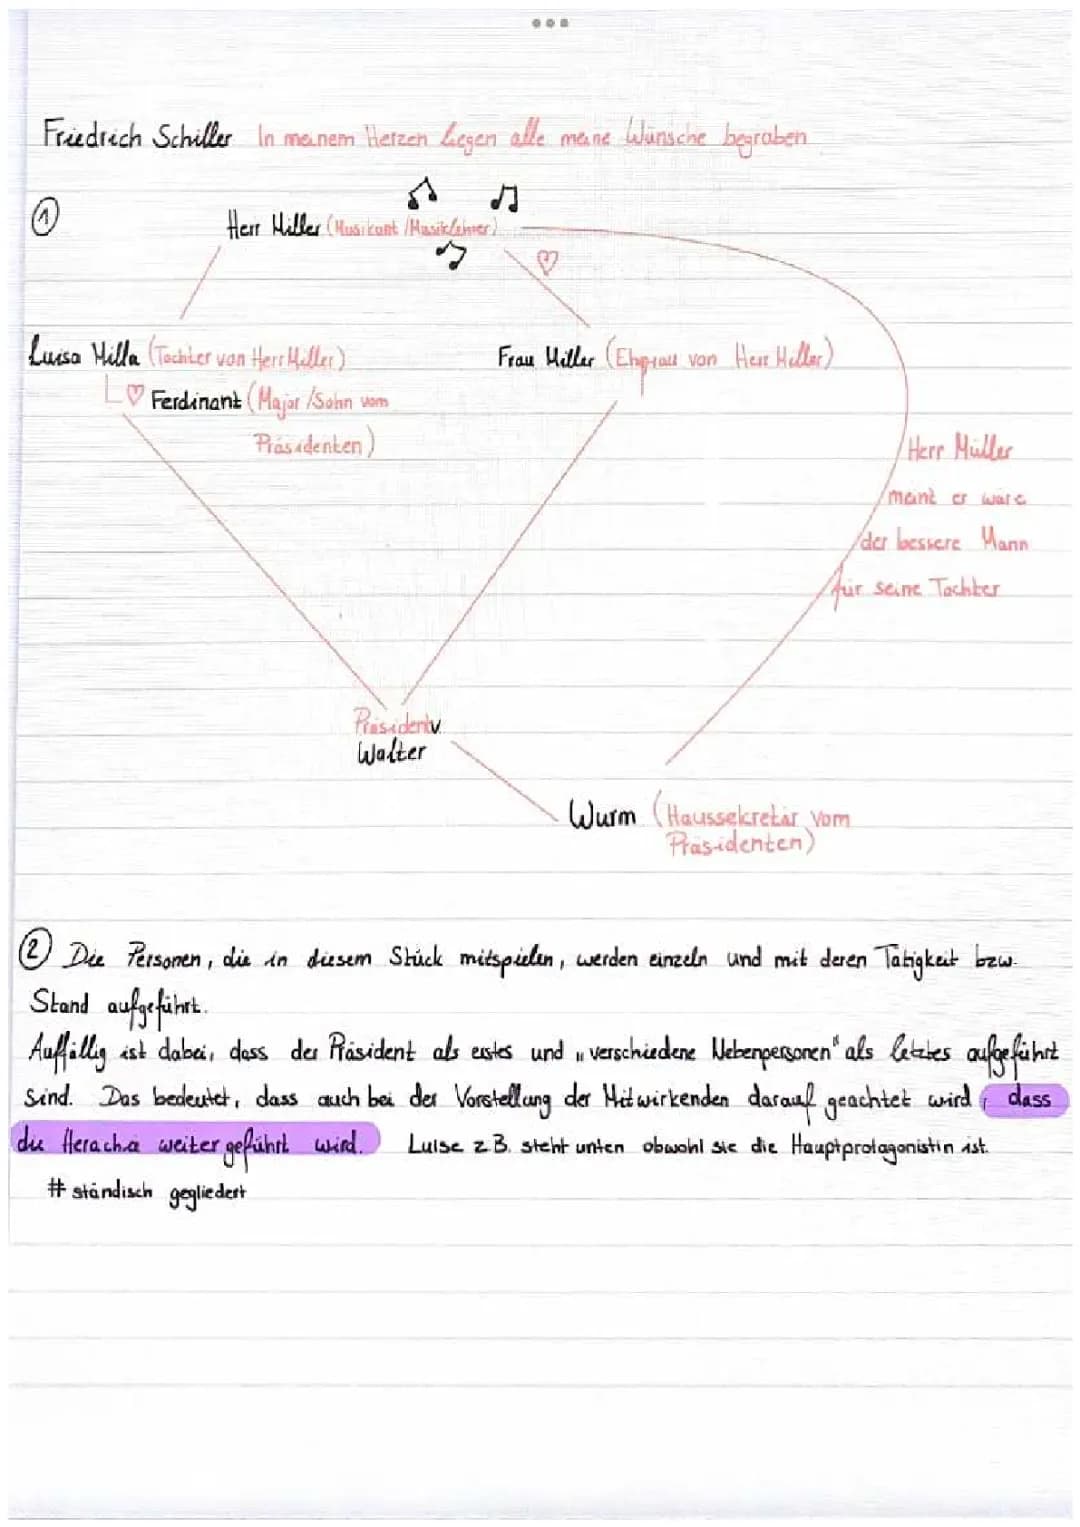 Friedrich Schiller In meinem Herzen liegen alle meine Wünsche begraben
1
Herr Miller (Musikant/Musiklehrer)
Luisa Milla (Tochter von Herr Miller)
Frau Miller (Ehefrau von Herr Miller)
Ferdinant (Major/Sohn vom
Präsidenten)
Herr Müller
meint er wäre
der bessere Mann
für seine Tochter
Präsident v.
Walter
Wurm (Haussekretär vom
Präsidenten)
2 Die Personen, die in diesem Stück mitspielen, werden einzeln und mit deren Tätigkeit bzw.
Stand aufgeführt.
Auffällig ist dabei, dass der Präsident als erstes und „verschiedene Nebenpersonen" als letztes aufgeführt
sind. Das bedeutet, dass auch bei der Vorstellung der Mitwirkenden darauf geachtet wird, dass
die Herachie weiter geführt wird. Luise z.B. steht unten obwohl sie die Hauptprotagonistin ist.
# ständisch gegliedert